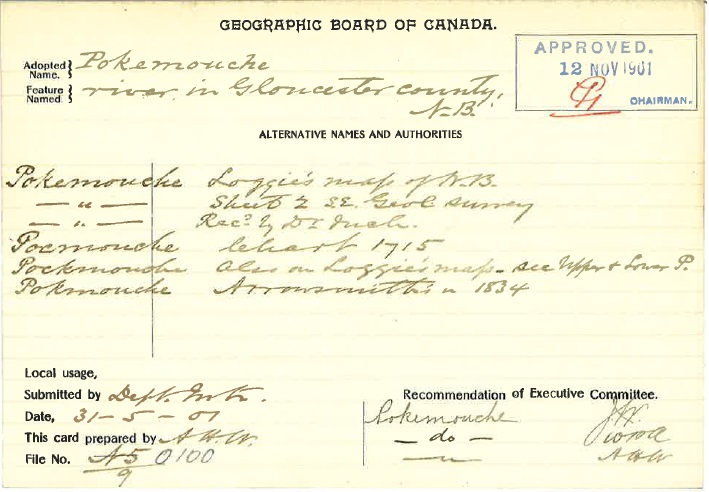 GEOGRAPHIC BOARD OF CANADA.
Adopted Name. } Pokemouche
Feature Named } river in Gloucester county, N.B.
APPROVED.
12 NOV 1901
CHAIRMAN.
ALTERNATIVE NAMES AND AUTHORITIES
Pokemouche Loggie's map of N.B.
— " — Sheet 2 S.E. Geol survey
— " — Rec.d by Dr
Pocmouche Chart 1715
Pockmouche Also on Loggie's map - see Upper & Lower P.
Pokmouche Arrowsmith's " 1834
Local usage,
Submitted by Dept. Intr.
Date, 31-5-01
This card prepared by A.H.W.
File No. N5/9 0100
Recommendation of Executive Committee.
Pokemouche
— do —
— " — A.H.W.